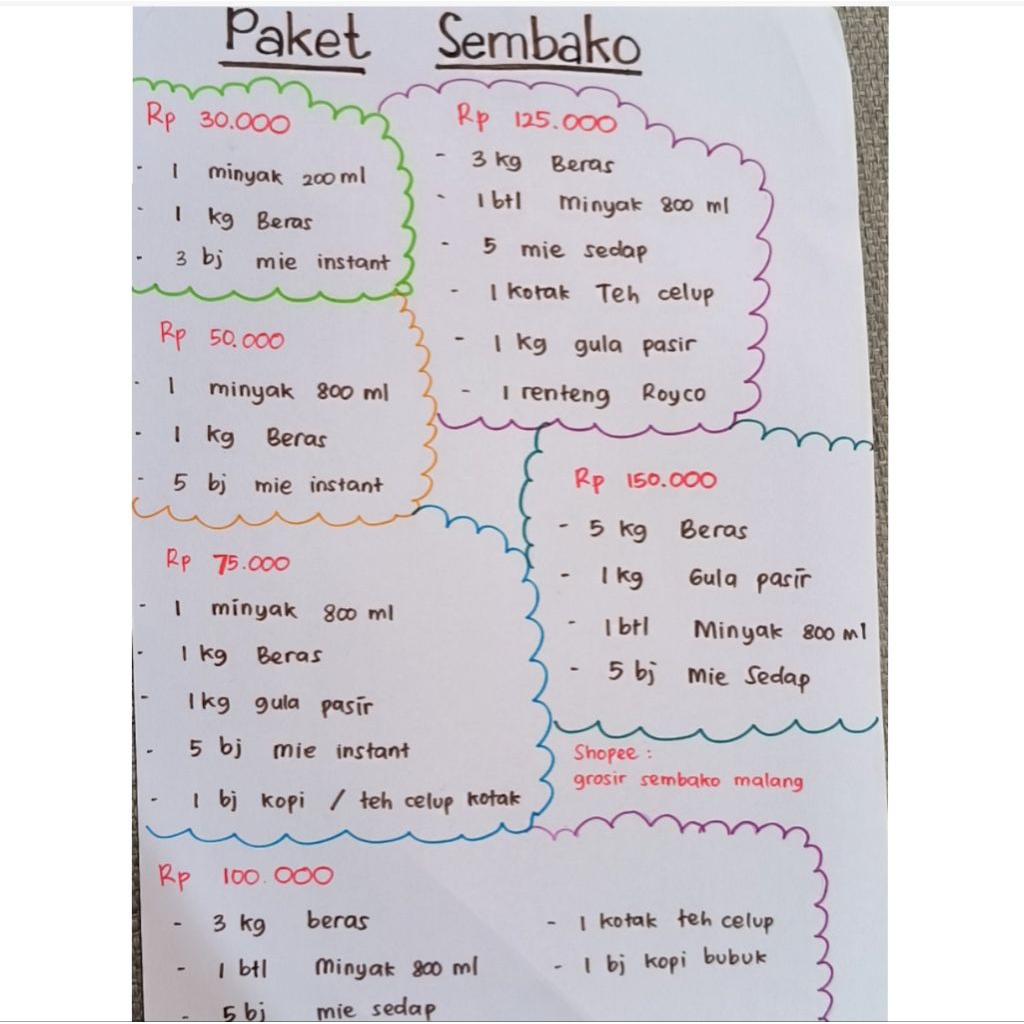 Paket Sembako
Rp 30.000
- 1 minyak 200 ml
- 1 kg Beras
- 3 bj mie instant
Rp 50.000
- 1 minyak 800 ml
- 1 kg Beras
- 5 bj mie instant
Rp 75.000
- 1 minyak 800 ml
- 1 kg Beras
- 1 kg gula pasir
- 5 bj mie instant
- 1 bj kopi / teh celup kotak
Rp 100.000
- 3 kg beras
- 1 btl Minyak 800 ml
- 5 bj mie sedap
- 1 kotak teh celup
- 1 bj kopi bubuk
Rp 125.000
- 3 kg Beras
- 1 btl Minyak 800 ml
- 5 mie sedap
- 1 kotak Teh celup
- 1 kg gula pasir
- 1 renteng Royco
Rp 150.000
- 5 kg Beras
- 1 kg Gula pasir
- 1 btl Minyak 800 ml
- 5 bj Mie Sedap
Shopee :
grosir sembako malang